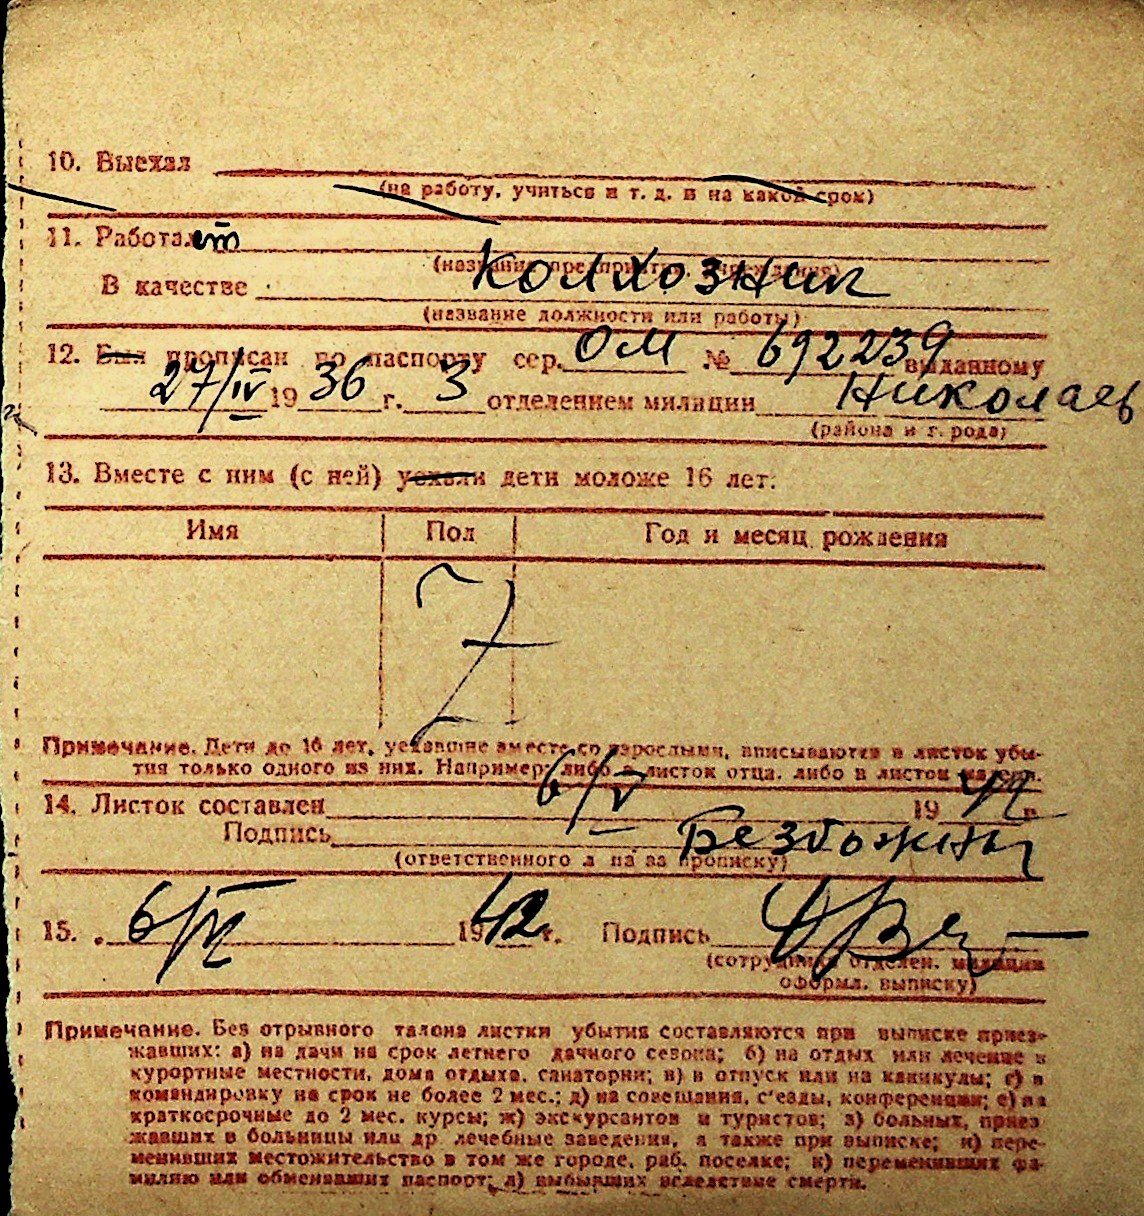 10. Выехал
(на работу, учиться и т. д. и на какой срок)
11. Работает
(название предприятия, учреждения)
В качестве колхозник
(название должности или работы)
12. Был прописан по паспорту сер. ОМ № 692239 выданному
27/IV 1936 г. 3 отделением милиции Николаев
(района и г. рода)
13. Вместе с ним (с ней) уехали дети моложе 16 лет:
Имя Пол Год и месяц рождения
Z
Примечание. Дети до 16 лет, уехавшие вместе со взрослыми, вписываются в листок убы-
тия только одного из них. Например: либо в листок отца, либо в листок матери.
14. Листок составлен 6/V 1942 г.
Подпись Безбожный
(ответственного л ца за прописку)
15. 6/VI 1942 г. Подпись
(сотрудника отделен. милиции
оформл. выписку)
Примечание. Без отрывного талона листки убытия составляются при выписке приез-
жавших: а) на дачи на срок летнего дачного сезона; б) на отдых или лечение в
курортные местности, дома отдыха, санатории; в) в отпуск или на каникулы; г) в
командировку на срок не более 2 мес.; д) на совещания, с'езды, конференции; е) на
краткосрочные до 2 мес. курсы; ж) экскурсантов и туристов; з) больных, приез
жавших в больницы или др лечебные заведения, а также при выписке; и) пере-
менивших местожительство в том же городе, раб. поселке; к) переменивших фа-
милию или обменявших паспорт; л) выбывших вследствие смерти.